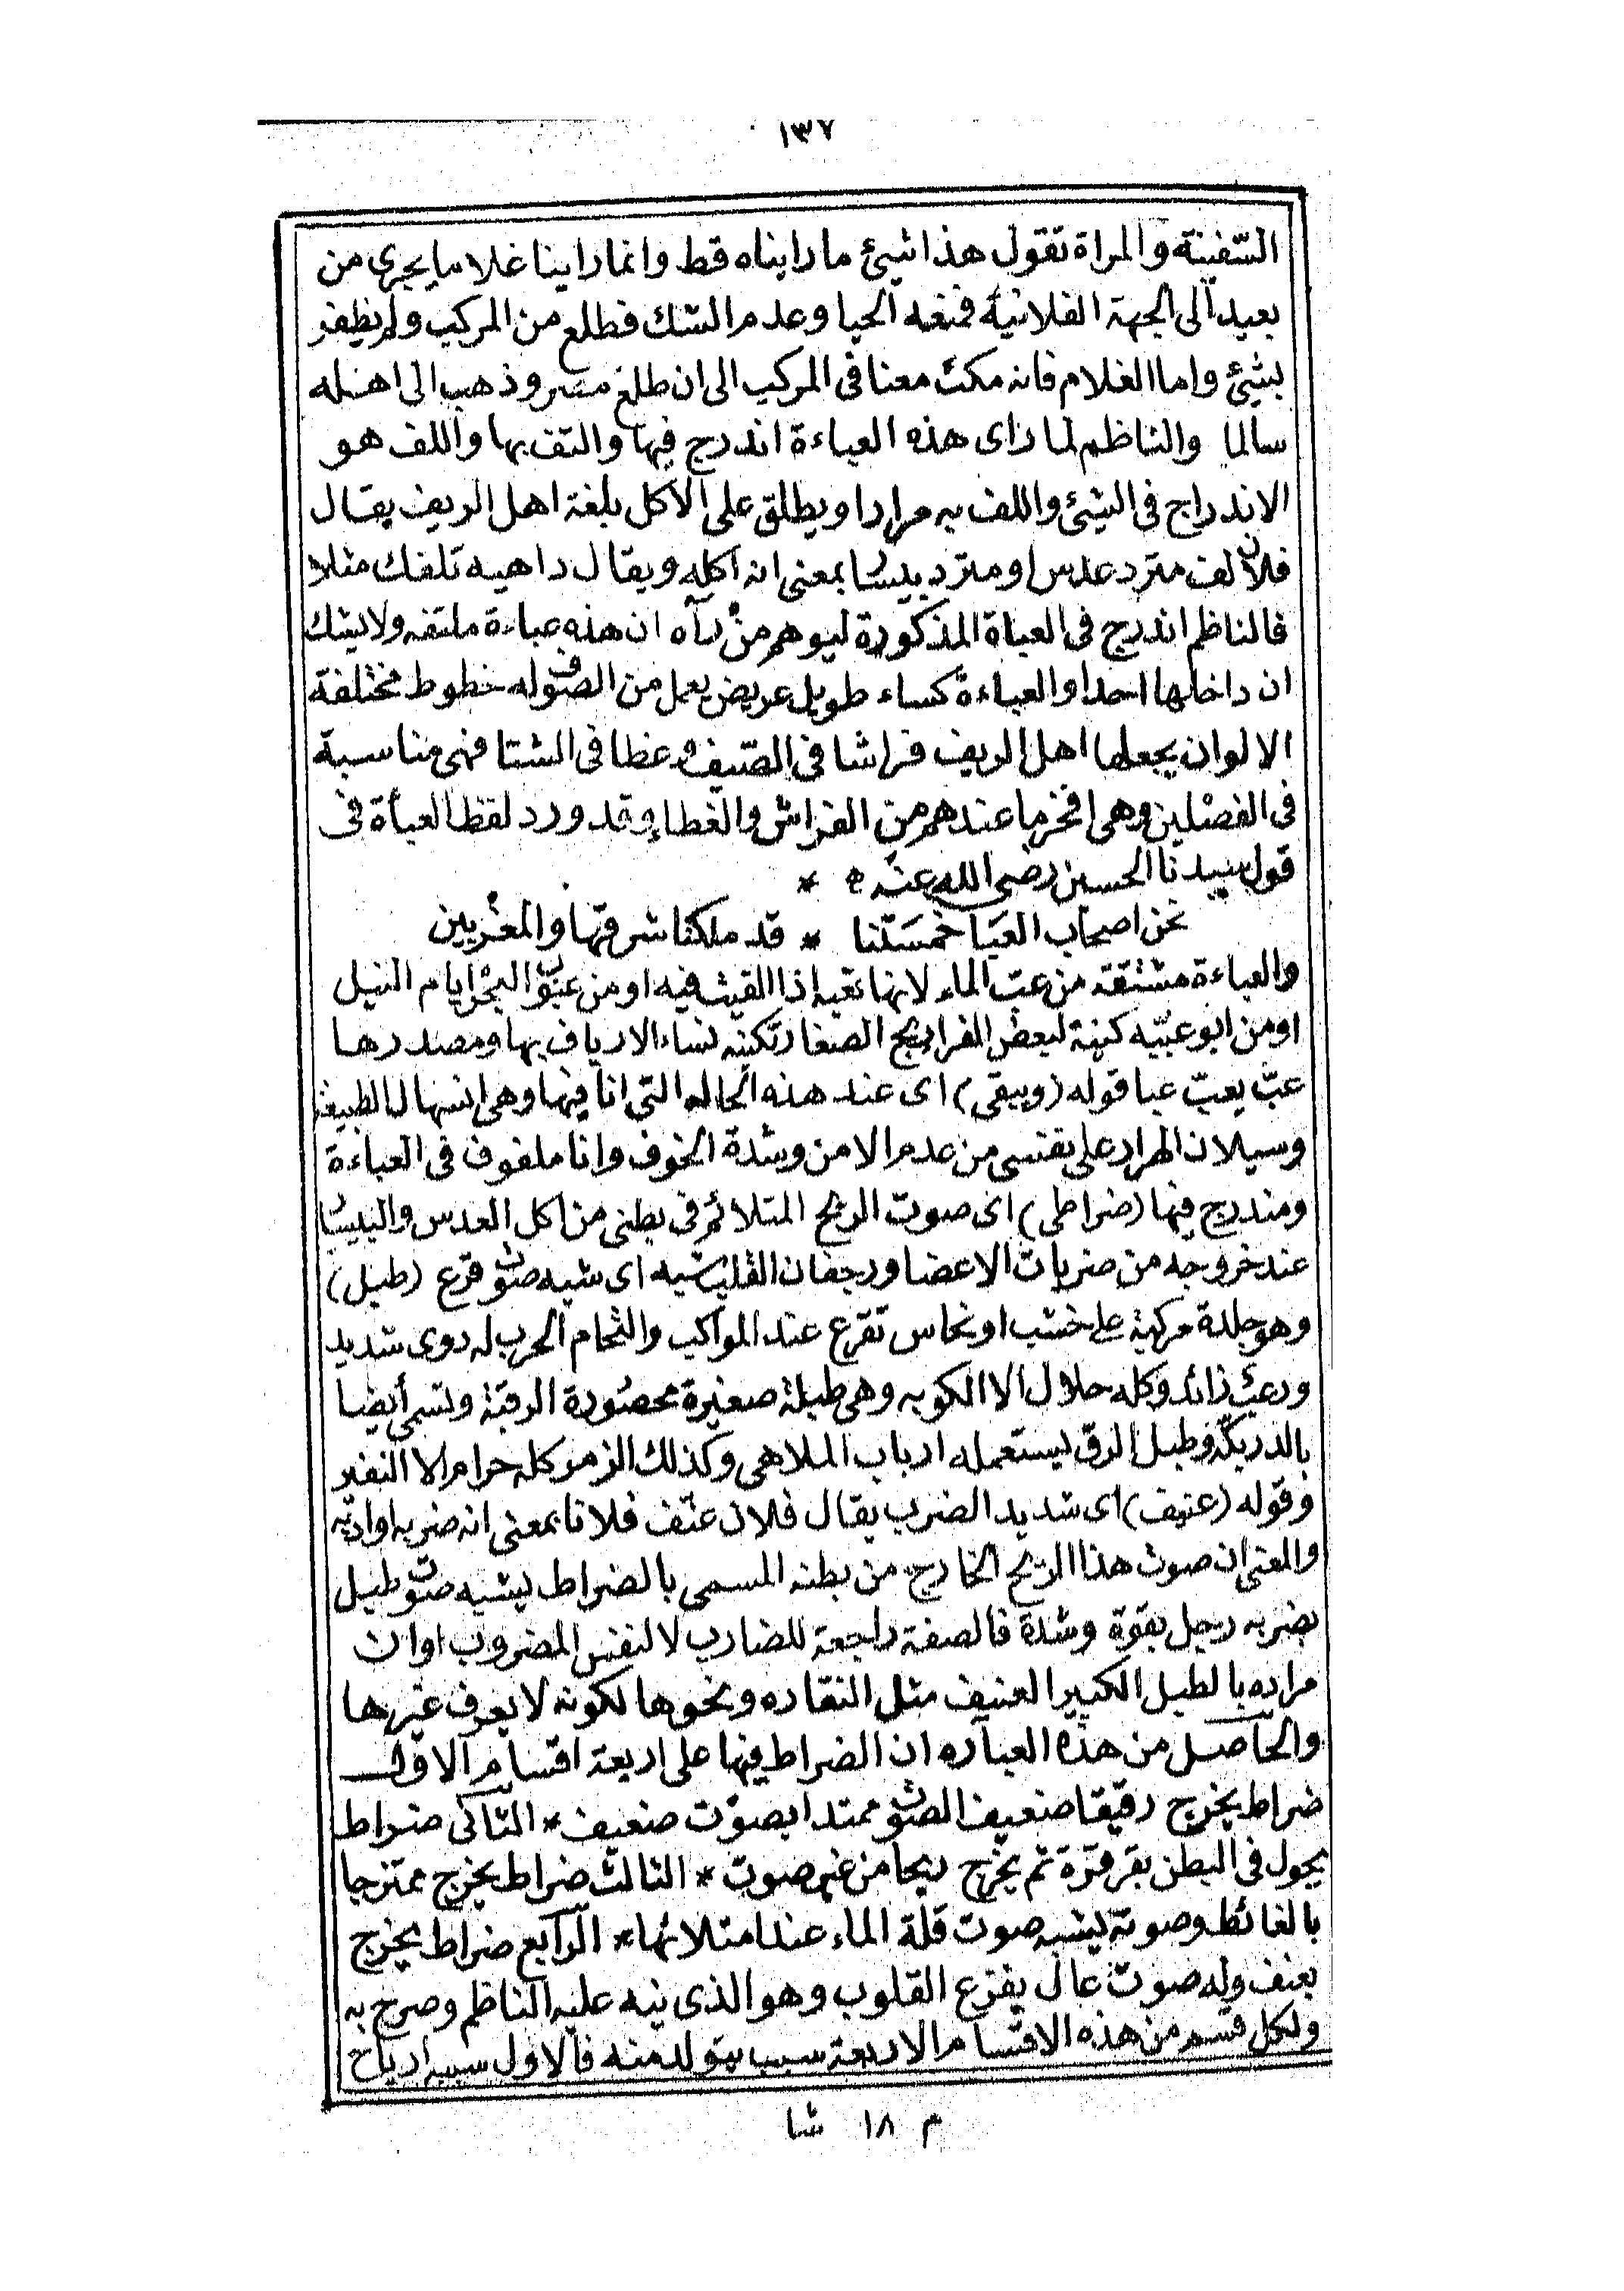 ١٣٧
السّفينة والمراة تقول هذا شيئ ما رايناه قط وانما راينا غلاما يجرى من
بعيد الى الجهة الفلانية فمنعه الحيا وعدم الشك فطلع من المركب ولم يظفر
بشيئ واما الغلام فانه مكث معنا فى المركب الى ان طلع مصر وذهب الى اهله
سالما والناظم لما راى هذه العباءة اندرج فيها والتف بها واللف هو
الاندراج فى الشيئ واللف به مرارا ويطلق على الاكل بلغة اهل الريف يقال
فلان لف مترد عدس او مترد بيسار بمعنى انه اكله ويقال داهيه تلفك مثلا
فالناظم اندرج فى العباة المذكورة ليوهم من رآه ان هذه عباءة ملتفه ولا يشك
ان داخلها احدا والعباءة كساء طويل عريض يعمل من الصوف له خطوط مختلفة
الالوان يجعلها اهل الريف فراشا فى الصّيف وغطا فى الشتا فهى مناسبة
فى الفصلين وهى افخر ما عندهم من الفراش والغطاء وقد ورد لفظ العبأة فى
قول سيدنا الحسين رضى الله عنه *
نحن اصحاب العبَا خمسَتنا * قد ملكنا شرقها والمغربين
والعباءة مشتقة من عبّ الماء لانها تعبه اذا القيت فيه او من عبوب البحر ايام النيل
او من ابو عبيّه كنية لبعض الفراريج الصغار تكنيه نساء الارياف بها ومصدرها
عبّ يعبّ عبا قوله (ويبقى) اى عند هذه الحاله التى انا فيها وهى انسهالى الطبيعة
وسيلان المراد على نفسى من عدم الامن وشدة الخوف وانا ملفوف فى العباءة
ومندرج فيها (ضراطى) اى صوت الريح المتلائم فى بطنى من اكل العدس والبيسار
عند خروجه من ضربات الاعضا ورجفان القلب شبه اى شبه صوت قرع (طبل)
وهو جلدة مركبة على خشب او نحاس تقرع عند المواكب والتحام الحرب له دوى شديد
ورعب زائد وكله حلال الا الكوبه وهى طبلة صغيرة محصورة الرقبة وتسمى أيضا
بالدربكّة وطبل الرق يستعمله ارباب الملاهى وكذلك الزمر كله حرام الا النفير
وقوله (عنيف) اى شديد الضرب يقال فلان عنّف فلانا بمعنى انه ضربه او ادبه
والمعنى ان صوت هذا الريح الخارج من بطنه المسمى بالضراط يشبه صوت طبل
يضربه رجل بقوة وشدة فالصفة راجعة للضارب لا لنفس المضروب او ان
مراده بالطبل الكبير العنيف مثل النقاره ونحوها لكونه لا يعرف غيرها
والحاصل من هذه العباره ان الضراط فيها على اربعة اقسام الاول
ضراط يخرج رقيقا ضعيف الصوت ممتدا بصوت ضعيف * الثانى ضراط
يجول فى البطن بقرقرة ثم يخرج ريحا من غير صوت * الثالث ضراط يخرج ممتزجا
بالغائط وصوته يشبه صوت قلة الماء عند امتلائها * الرّابع ضراط يخرج
بعنف وله صوت عال يفزع القلوب وهو الذى نبه عليه الناظم وصرح به
ولكل قسم من هذه الاقسام الاربعة سبب يتولد منه فالاول سببه ارياح
م ١٨ شا